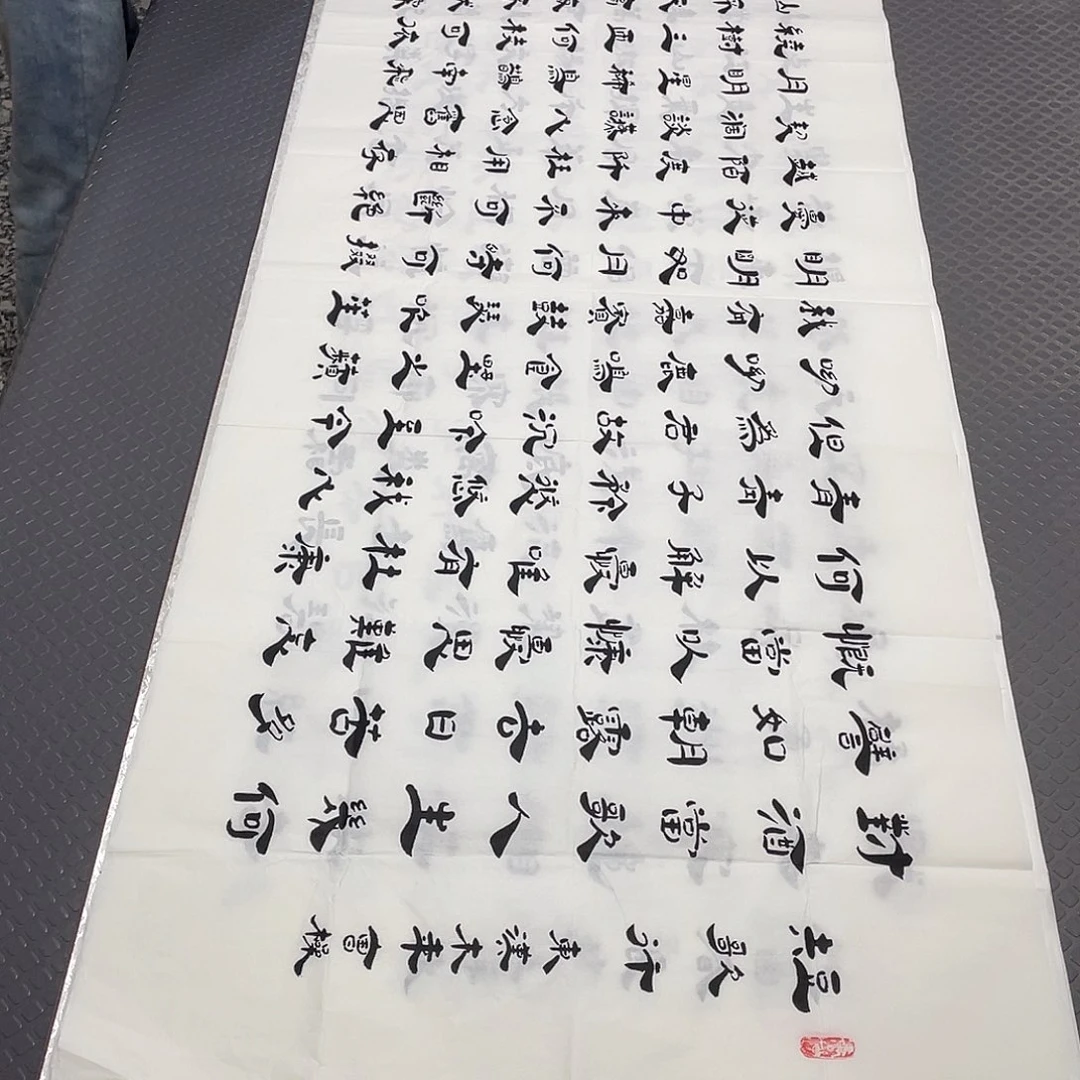 短歌行 東漢末年 曹操
對酒當歌人生幾何
譬如朝露去日苦多
慨當以慷憂思難忘
何以解憂唯有杜康
青青子衿悠悠我心
但為君故沉吟至今
呦呦鹿鳴食野之蘋
我有嘉賓鼓瑟吹笙
明明如月何時可掇
憂從中來不可斷絕
越陌度阡枉用相存
契闊談讌心念舊恩
月明星稀烏鵲南飛
繞樹三匝何枝可依
山